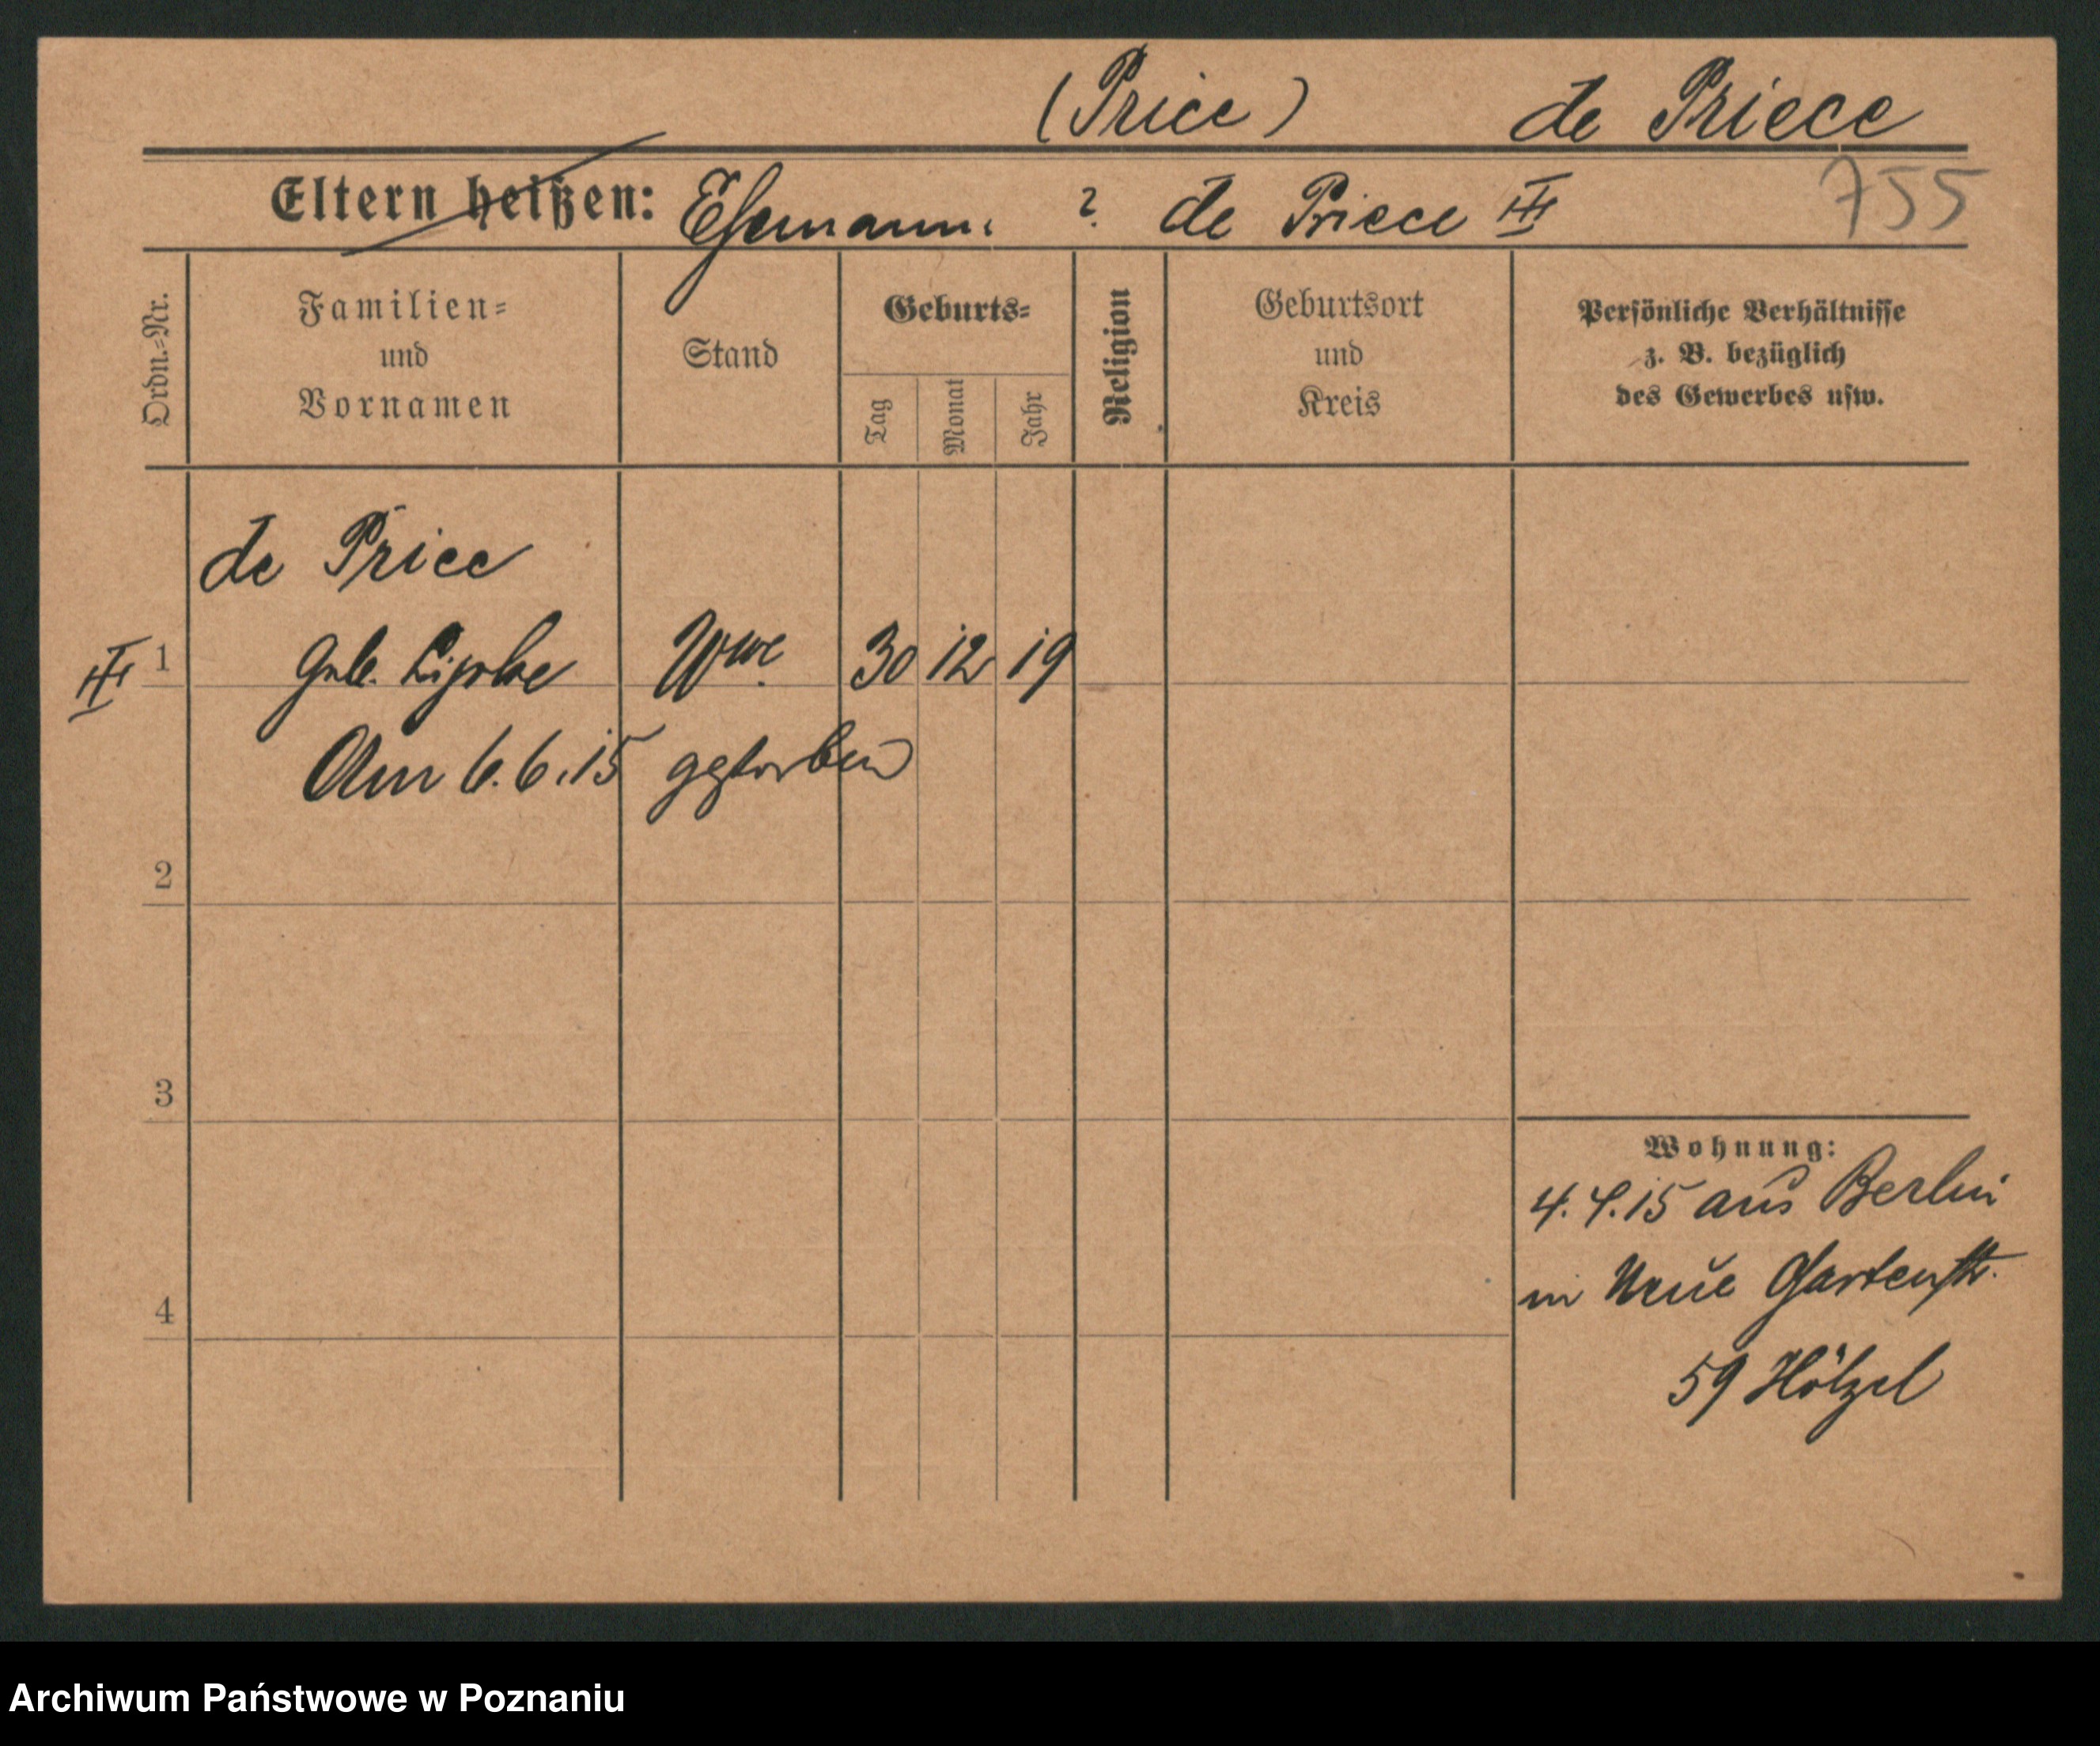 (Price) de Priece
Eltern heißen: Ehemann. ? de Priece III
755
Ordn.-Nr.
Familien-
und
Vornamen
Stand
Geburts-
Tag
Monat
Jahr
Religion
Geburtsort
und
Kreis
Persönliche Verhältnisse
z. B. bezüglich
des Gewerbes usw.
de Price
III 1 geb. Wwe. 30 12 19
Am 6.6.15 gestorben
2
3
4
Wohnung:
4.4.15 aus Berlin
in Neue Gartenstr.
59 Hölzel
Archiwum Państwowe w Poznaniu